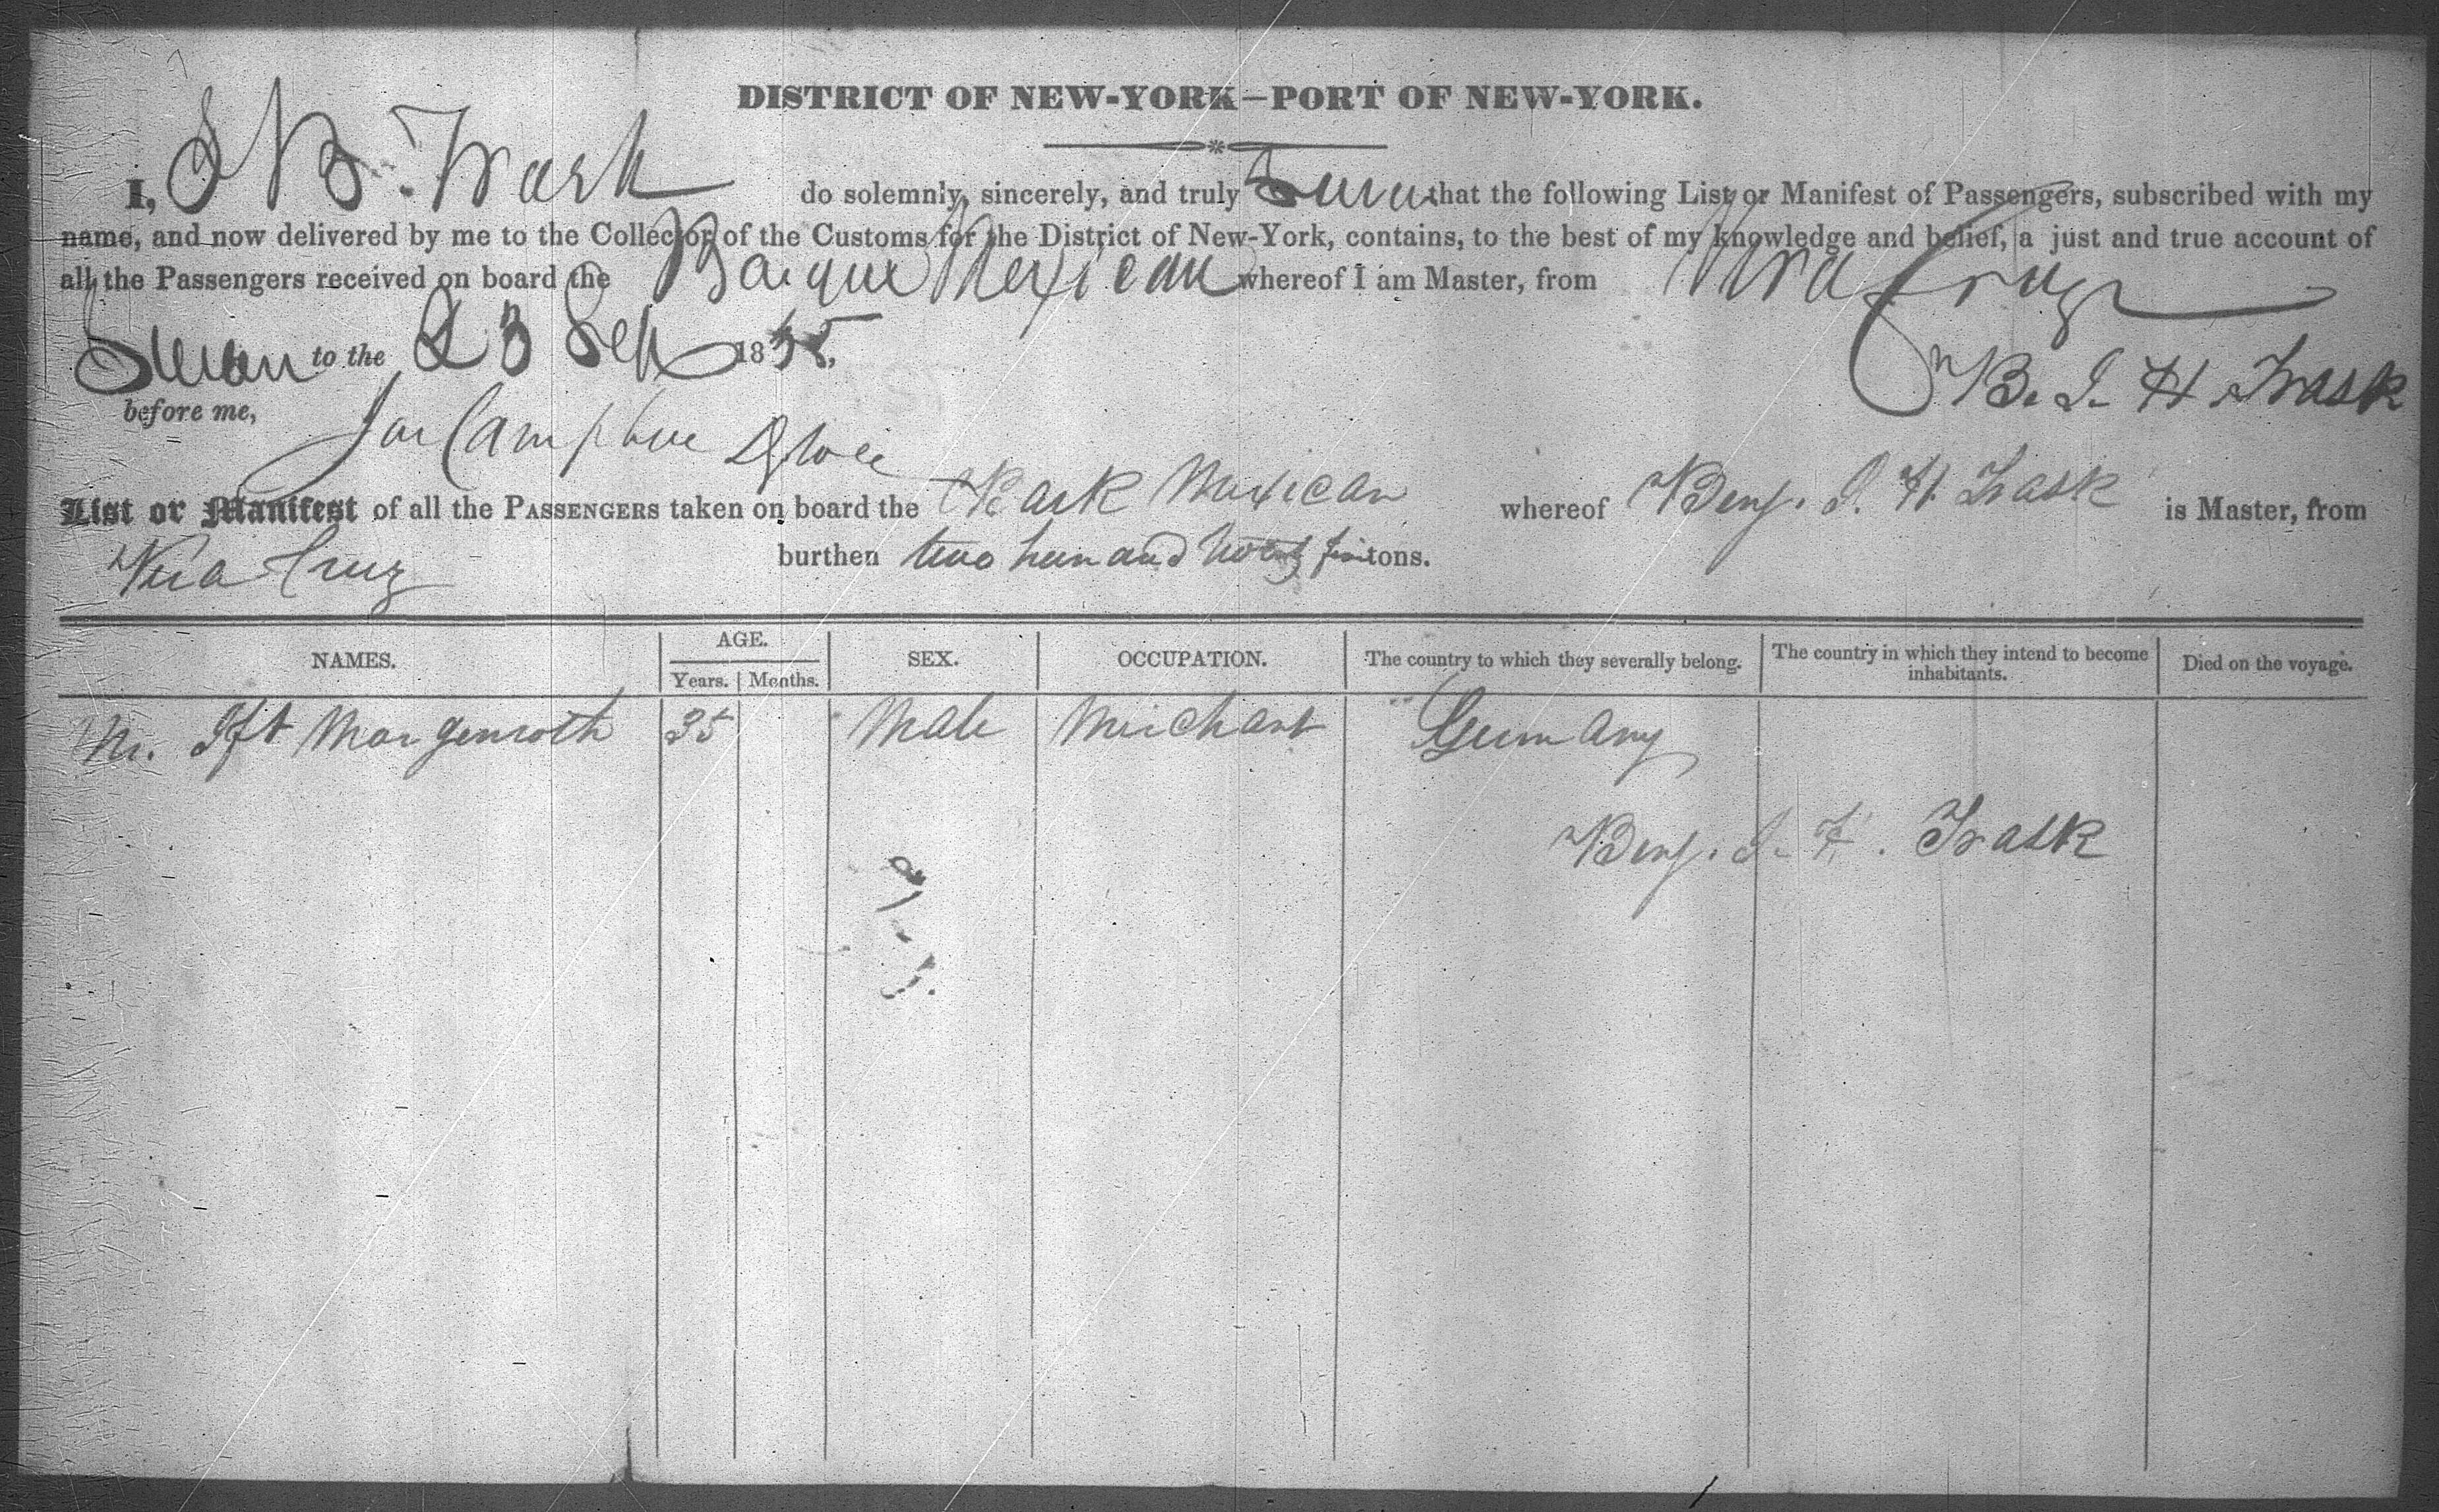 DISTRICT OF NEW-YORK—PORT OF NEW-YORK.
I, B. Trask do solemnly, sincerely, and truly Swear that the following List or Manifest of Passengers, subscribed with my
name, and now delivered by me to the Collector of the Customs for the District of New-York, contains, to the best of my knowledge and belief, a just and true account of
all the Passengers received on board the Barque Mexican whereof I am Master, from Vera Cruz
Sworn to the 23 Sep 1835,
B. I. H. Trask
before me,
List or Manifest of all the PASSENGERS taken on board the Bark Mexican whereof Benj. I. H. Trask is Master, from
Vera Cruz burthen two hun and twenty tons.
NAMES. AGE. SEX. OCCUPATION. The country to which they severally belong. The country in which they intend to become inhabitants. Died on the voyage.
Years. Months.
Mr. Morgenroth 35 Male Merchant Germany
Benj. I. H. Trask